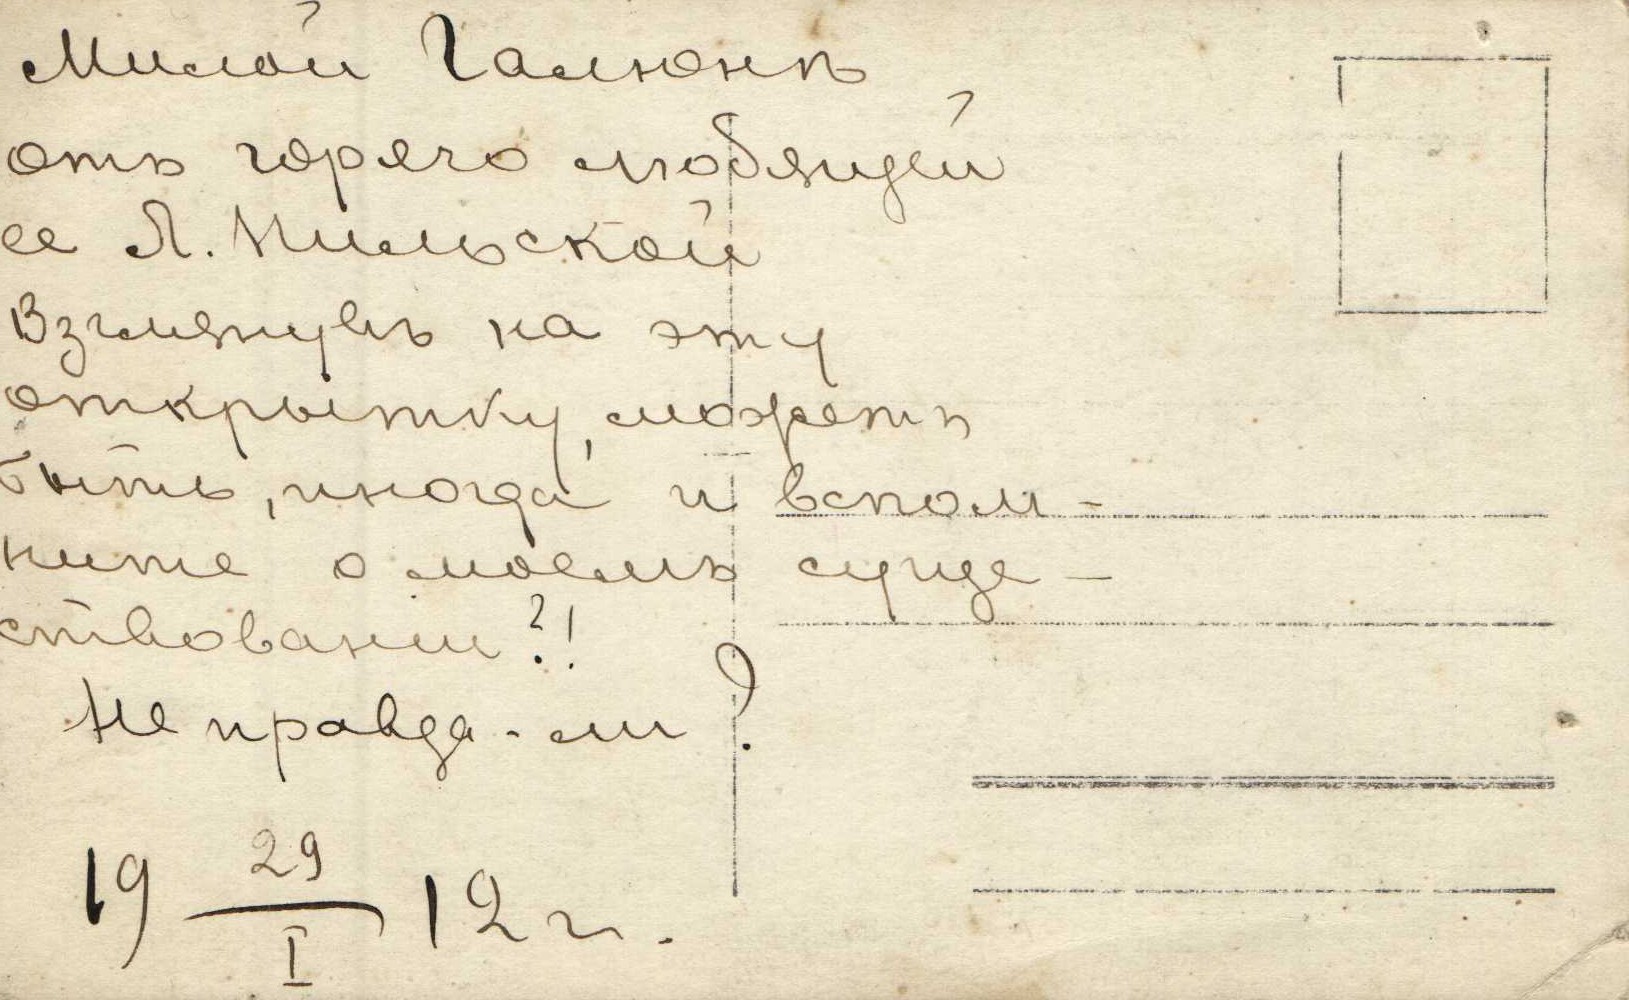 Милой Галюнѣ
отъ горячо любящей
ее Л. Нильской
Взглянувъ на эту
открытку, можетъ
быть, иногда и вспом-
ните о моемъ суще-
ствовании?!
Не правда-ли?
19 29/I 12 г.